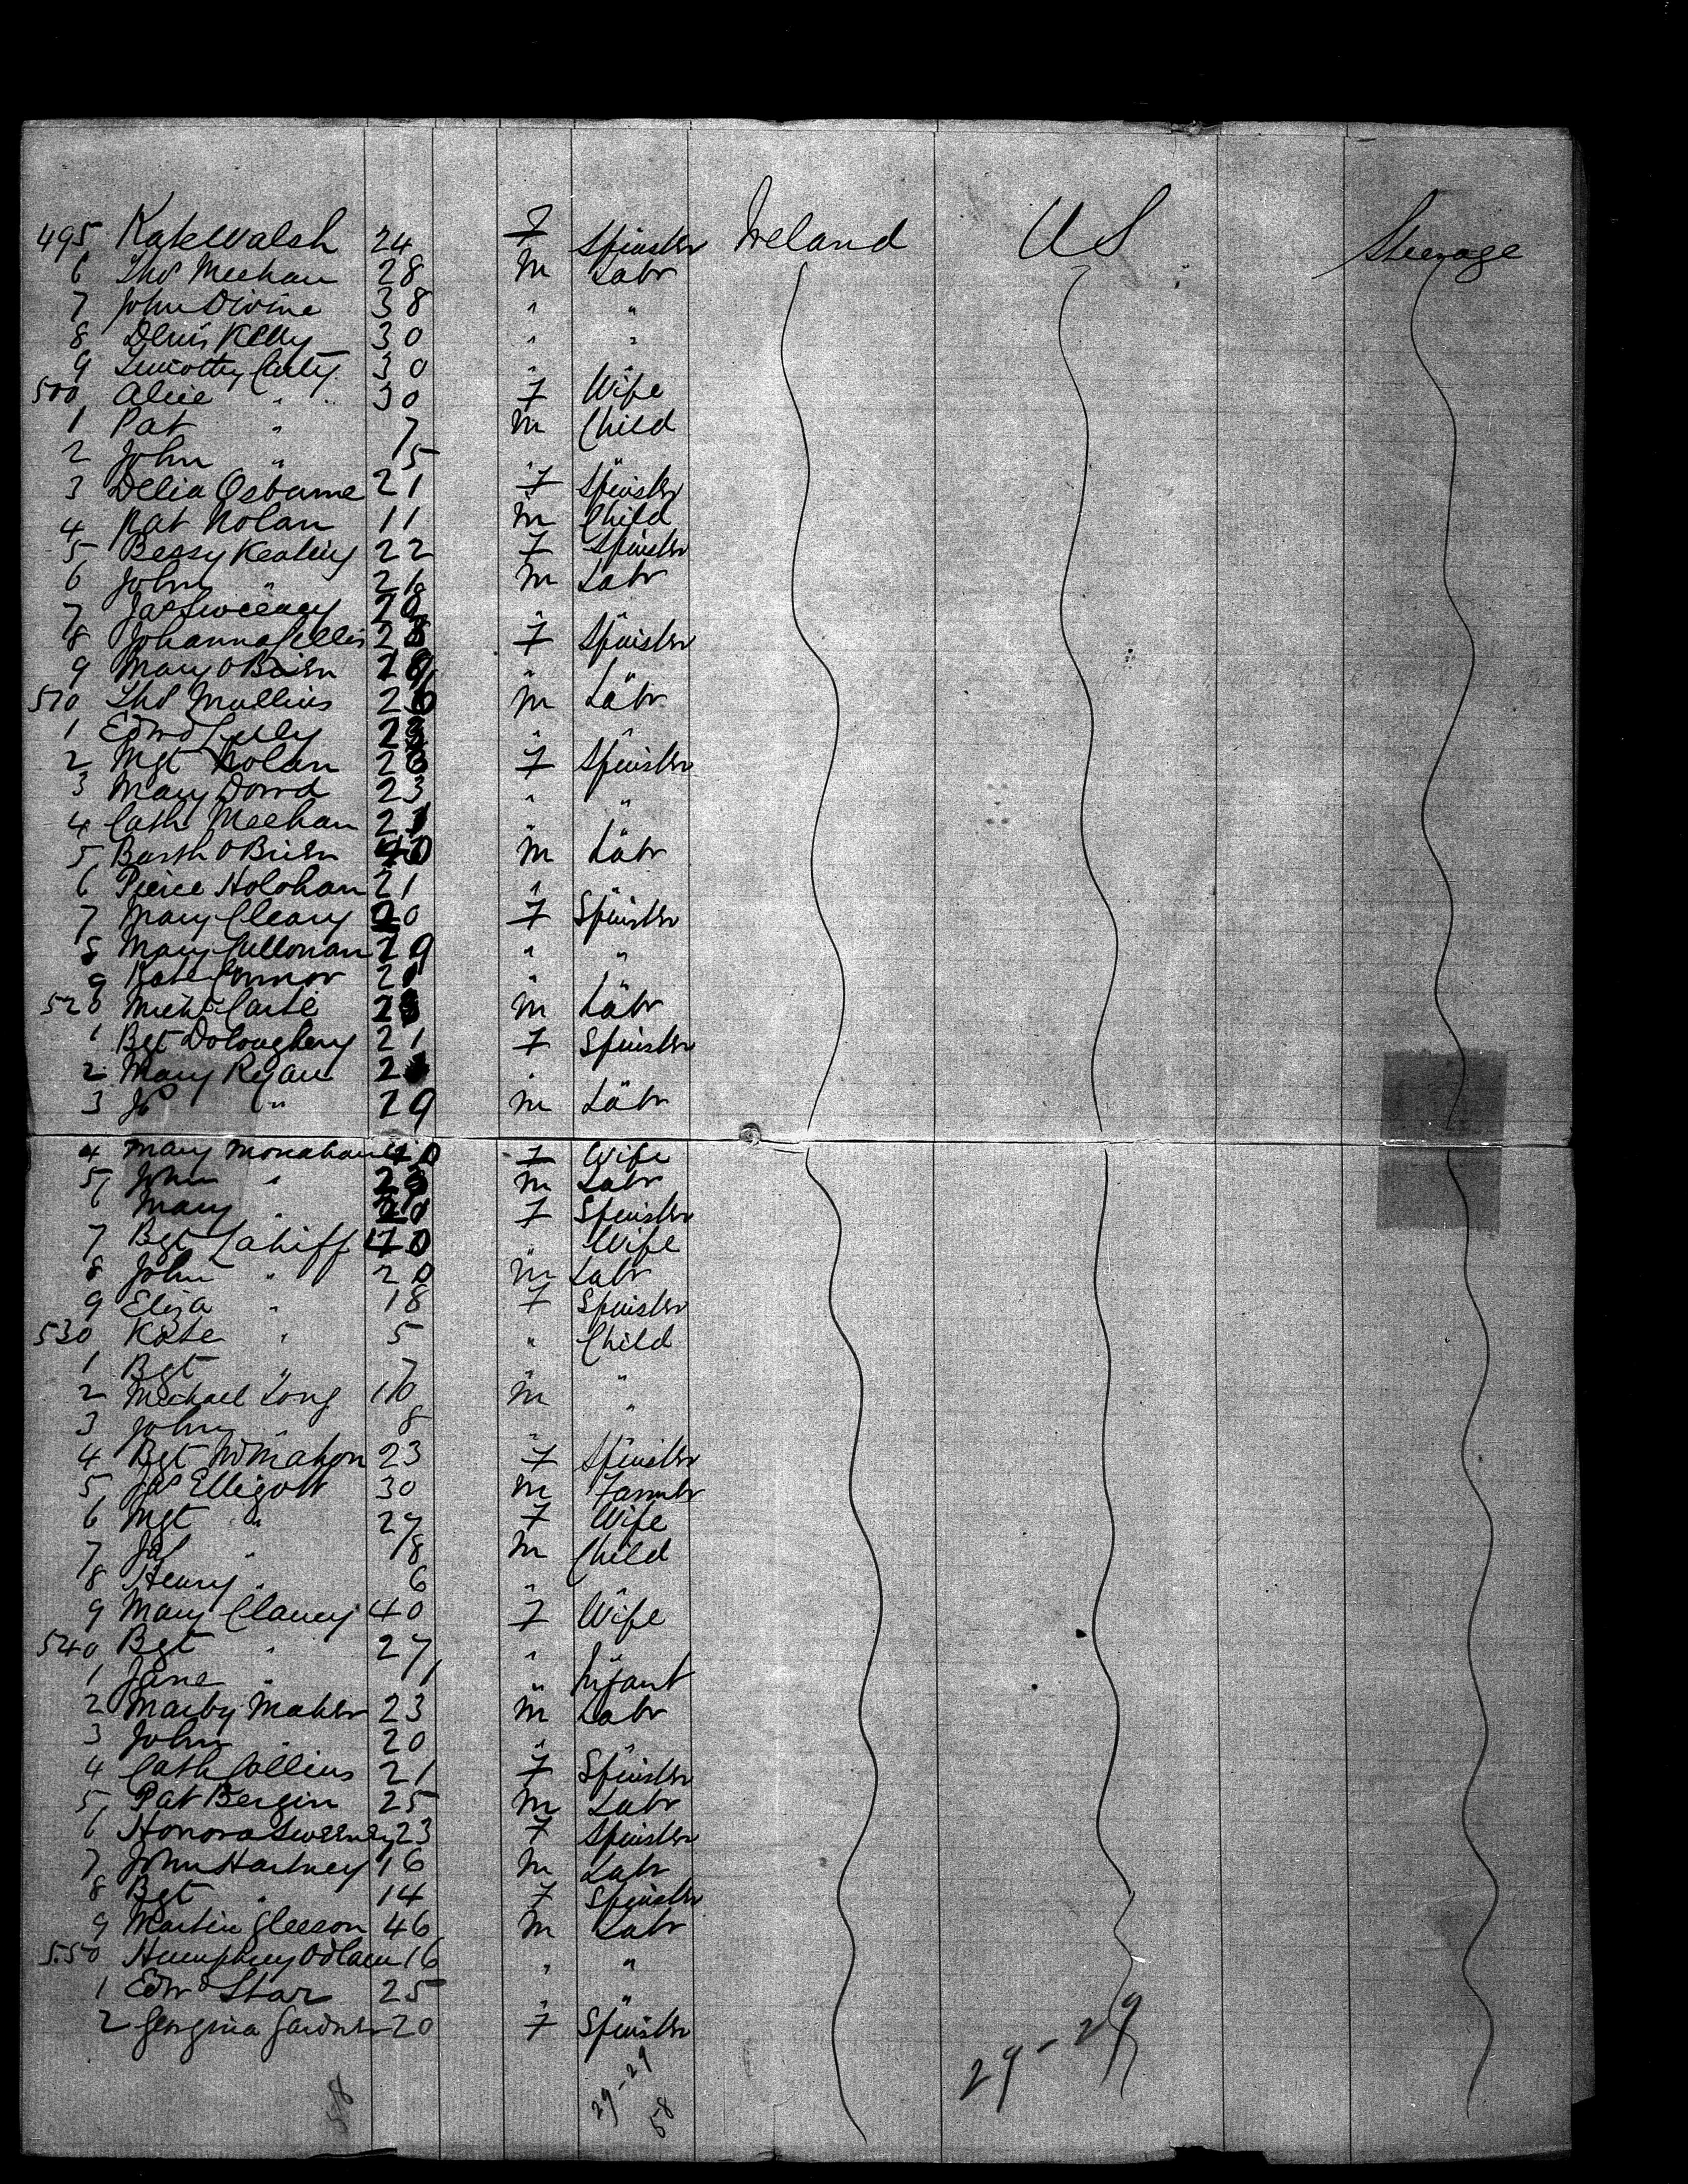 495 Kate Walsh 24 F Spinster Ireland US Steerage
6 Thos Meehan 28 M Labr
7 John Divine 38 " "
8 Denis Kelly 30 " "
9 Timothy Carty 30 " "
500 Alice " 30 F Wife
1 Pat " 7 M Child
2 John " 5 " "
3 Delia Osbourne 21 F Spinster
4 Pat Nolan 11 M Child
5 Bessy Keating 22 F Spinster
6 John " M Labr
7 Jas Sweeney 20 " "
8 Johanna F Spinster
9 Mary OBrien " "
510 Thos Mullins M Labr
1 Edwd " "
2 Mgt Nolan F Spinster
3 Mary Dowd 23 " "
4 Cath Meehan " "
5 Barth OBrien 40 M Labr
6 Pierce Holohan 21 " "
7 Mary Cleary 20 F Spinster
8 Mary " "
9 Kate Connor " "
520 M Labr
1 Bgt Doloughery 21 F Spinster
2 Mary Ryan " "
3 " M Labr
4 Mary Monahan 40 F Wife
5 John " M Labr
6 Mary " F Spinster
7 Bgt Lahiff 40 " Wife
8 John " 20 M Labr
9 Eliza " 18 F Spinster
530 Kate " 5 " Child
1 Bgt " 7 " "
2 Michael Long 10 M "
3 John " 8 " "
4 Bgt McMahon 23 F Spinster
5 Jas Elligott 30 M Farmer
6 Mgt " 27 F Wife
7 Jas " 8 M Child
8 Henry " 6 " "
9 Mary Clancy 40 F Wife
540 Bgt " 27 " "
1 Jane " " Infant
2 Maher 23 M Labr
3 John " 20 " "
4 Cath Collins 21 F Spinster
5 Pat Bergin 25 M Labr
6 Honora Sweeney 23 F Spinster
7 John Hartney 16 M Labr
8 Bgt " 14 F Spinster
9 Martin Gleeson 46 M Labr
550 Humphrey 16 " "
1 Edwd Star 25 " "
2 Georgina Gardner 20 F Spinster
29-29
29-29
58
58